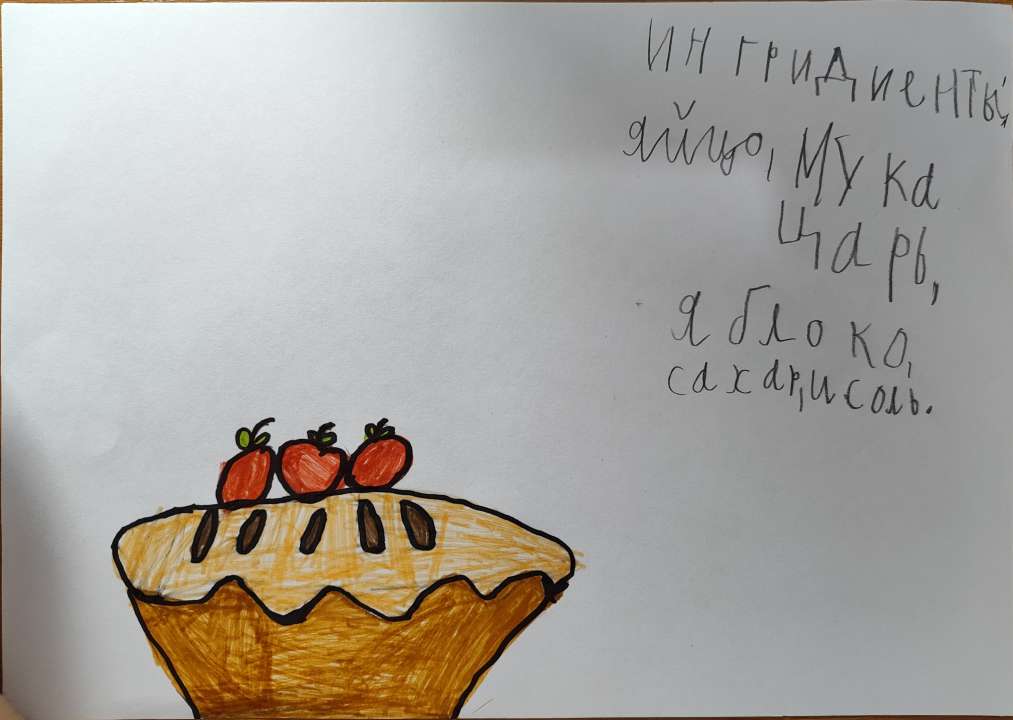 ингридиенты,
яйцо, мука
царь,
яблоко,
сахар, и соль.